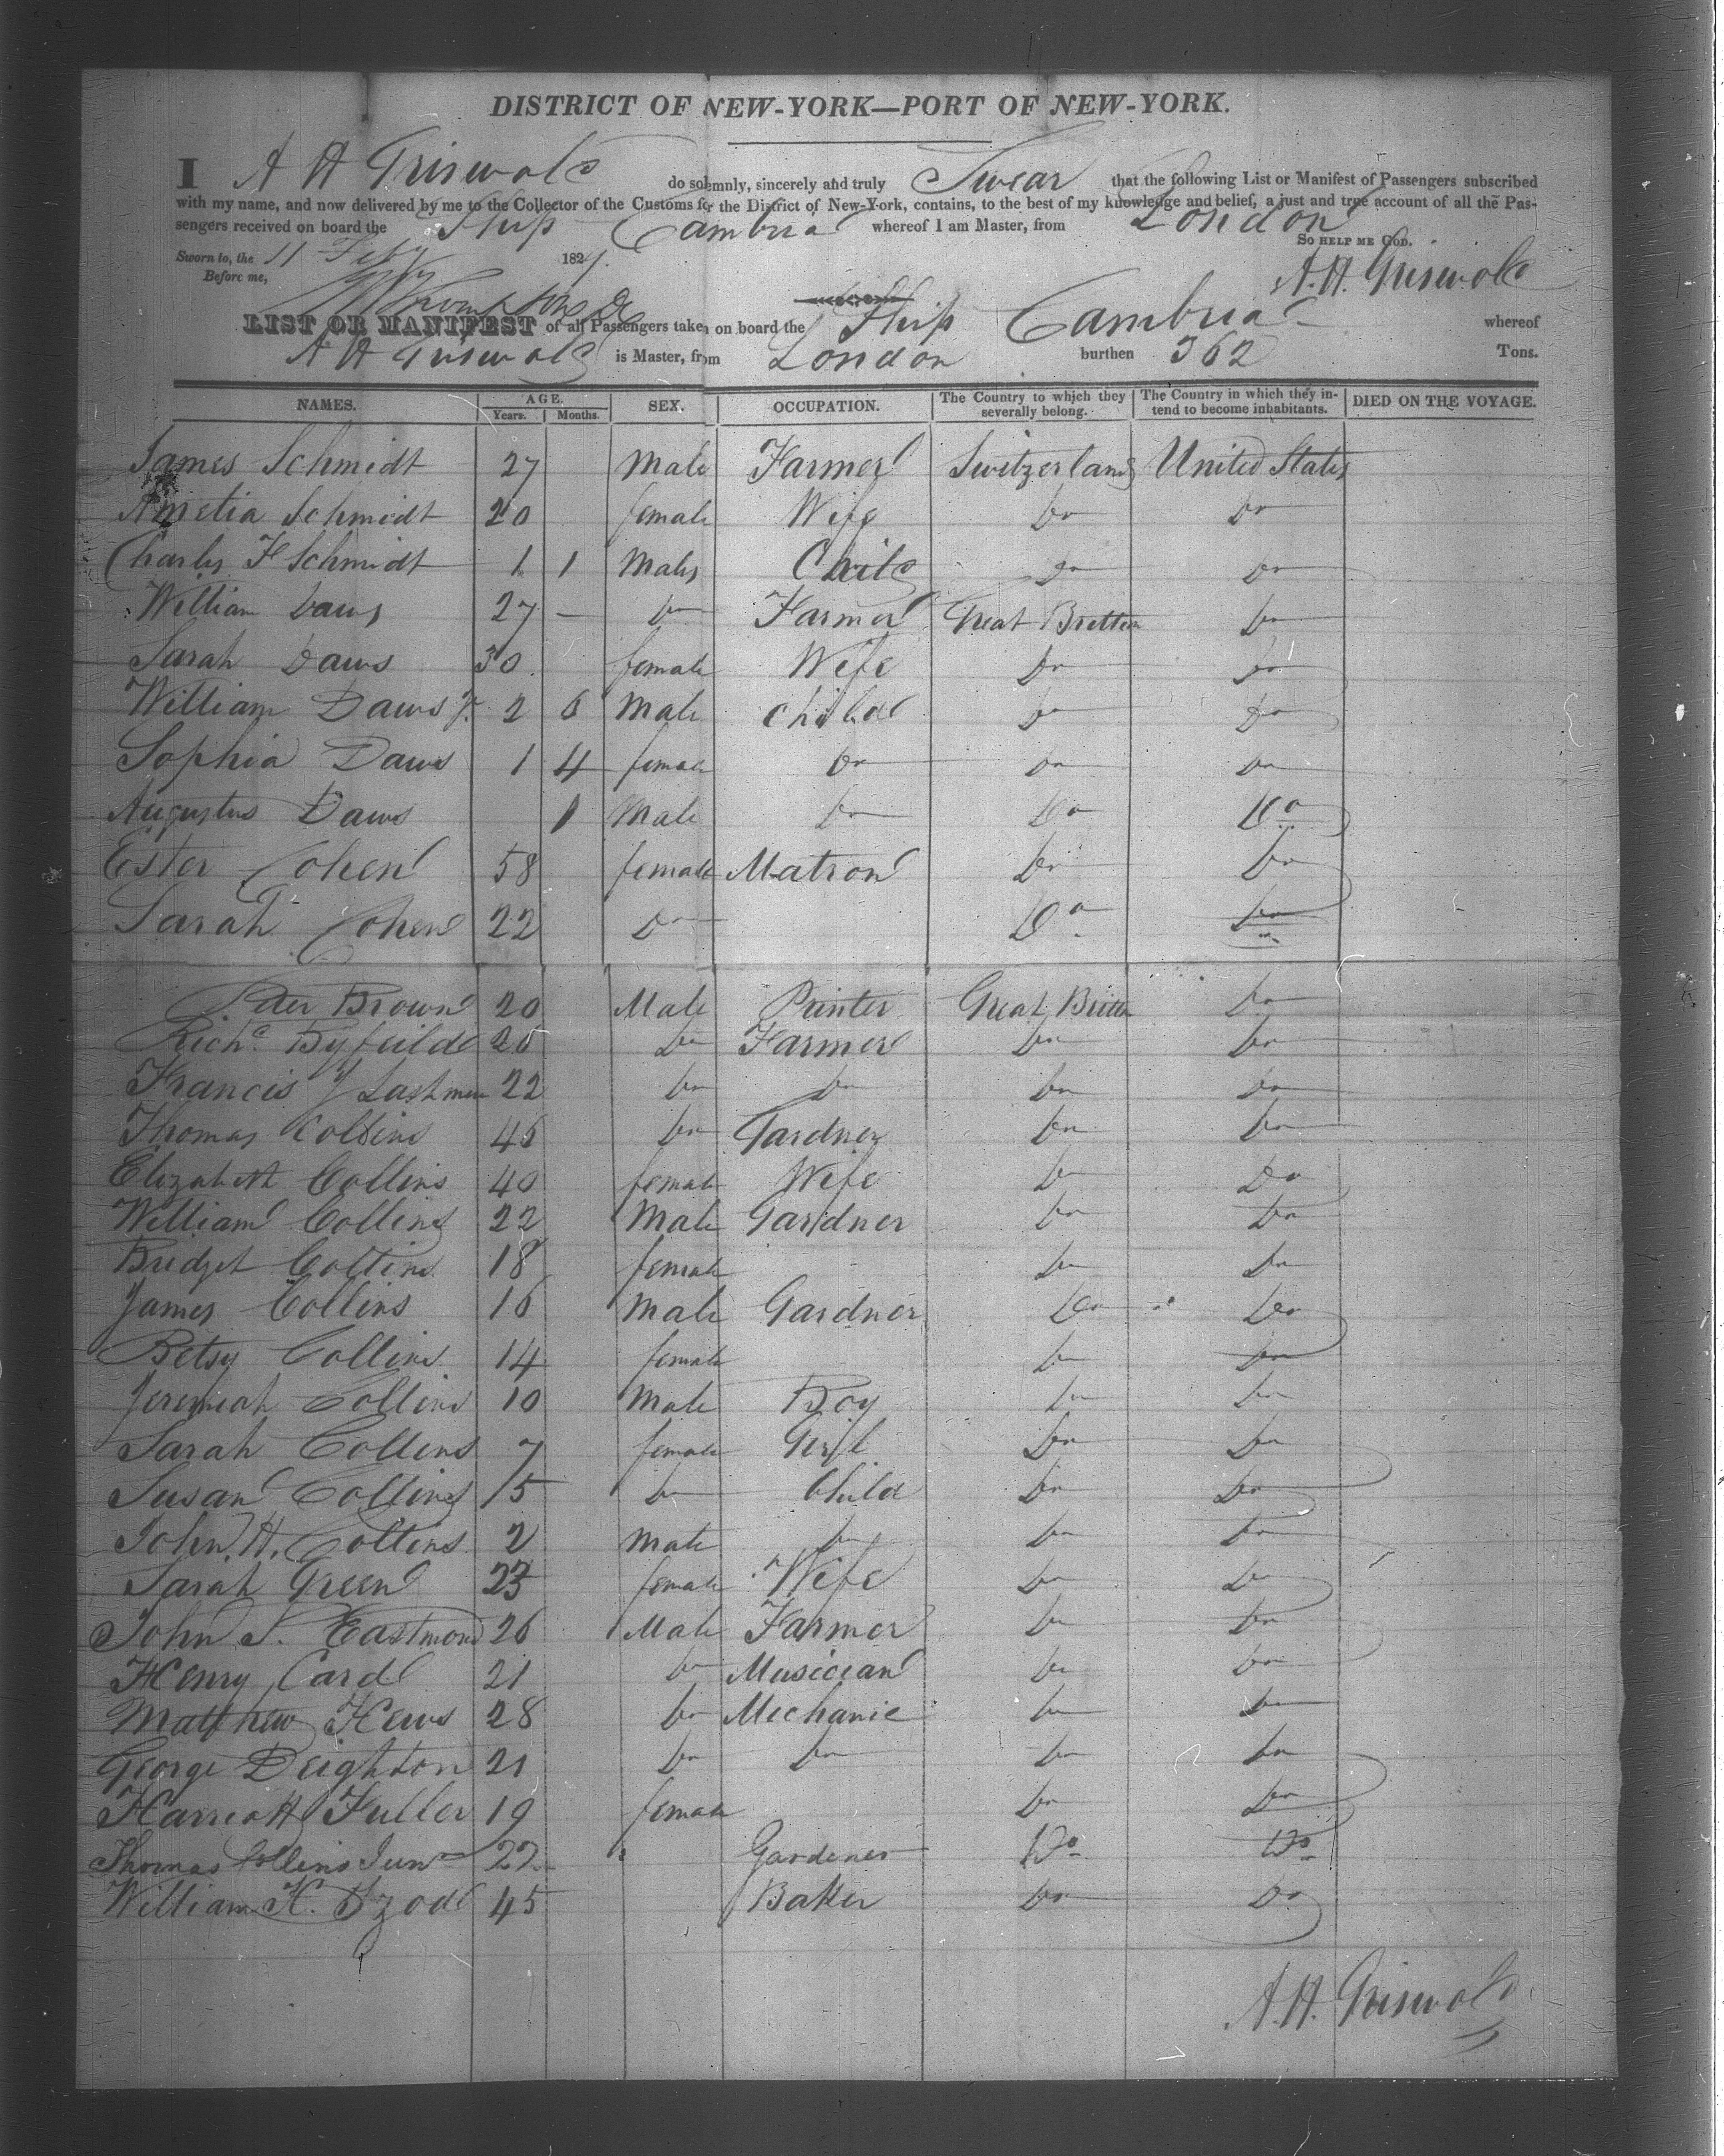 DISTRICT OF NEW-YORK—PORT OF NEW-YORK.
I A H Griswold do solemnly, sincerely and truly Swear that the following List or Manifest of Passengers subscribed
with my name, and now delivered by me to the Collector of the Customs for the District of New-York, contains, to the best of my knowledge and belief, a just and true account of all the Pas-
sengers received on board the Ship Cambria whereof I am Master, from London
So HELP ME GOD.
Sworn to, the 11 Feby 182
Before me,
A. H. Griswold
LIST OR MANIFEST of all Passengers taken on board the Ship Cambria whereof
A H Griswold is Master, from London burthen 362 Tons.
NAMES. AGE. Years. Months. SEX. OCCUPATION. The Country to which they severally belong. The Country in which they intend to become inhabitants. DIED ON THE VOYAGE.
James Schmidt 27 Male Farmer Switzerland United States
Amelia Schmidt 20 female Wife Do Do
Charles F Schmidt 1 1 Male Child Do Do
William Daws 27 — Do Farmer Great Britten Do
Sarah Daws 30 female Wife Do Do
William Daws Jr. 2 6 Male Child Do Do
Sophia Daws 1 4 female Do Do Do
Augustus Daws 1 Male Do Do Do
Ester Cohen 58 female Matron Do Do
Sarah Cohen 22 Do Do Do
Peter Brown 20 Male Printer Great Britten Do
Richd Byfeild 20 Do Farmer Do Do
Francis J 22 Do Do Do Do
Thomas Collins 46 Do Gardner Do Do
Elizabeth Collins 40 female Wife Do Do
William Collins 22 Male Gardner Do Do
Bridget Collins 18 female Do Do
James Collins 16 Male Gardner Do Do
Betsy Collins 14 female Do Do
Jeremiah Collins 10 Male Boy Do Do
Sarah Collins 7 female Girl Do Do
Susan Collins 5 Do Child Do Do
John H. Collins 2 Male Do Do Do
Sarah Green 23 female Wife Do Do
John S. Eastmond 26 Male Farmer Do Do
Henry Card 21 Do Musician Do Do
Matthew Hews 28 Do Mechanic Do Do
George Deighton 21 Do Do Do Do
Harriott Fuller 19 female Do Do
Thomas Collins Junr 22 Gardener Do Do
William H. Izod 45 Baker Do Do
A. H. Griswold